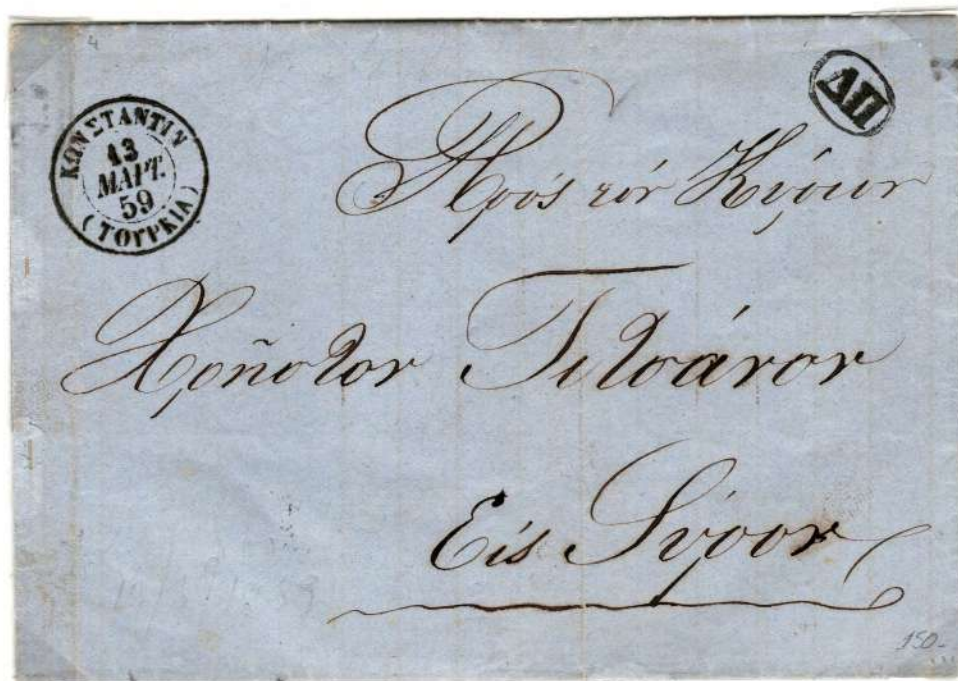 4
ΚΩΝΣΤΑΝΤΙΝ
13
ΜΑΡΤ.
59
(ΤΟΥΡΚΙΑ)
ΔΠ
Πρός τόν Κύριον
Χρῆστον
Εἰς Σύρον
150-